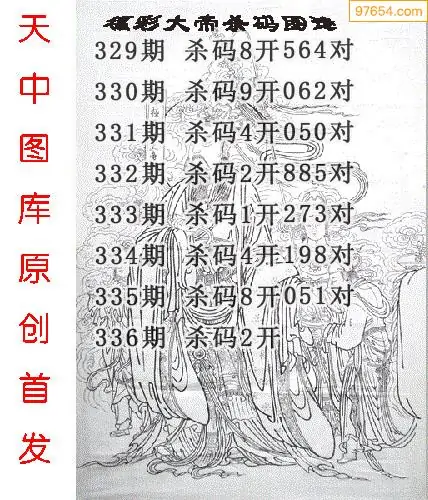 97654.com
福彩大帝杀码图迷
329期 杀码8开564对
330期 杀码9开062对
331期 杀码4开050对
332期 杀码2开885对
333期 杀码1开273对
334期 杀码4开198对
335期 杀码8开051对
336期 杀码2开
天中图库原创首发